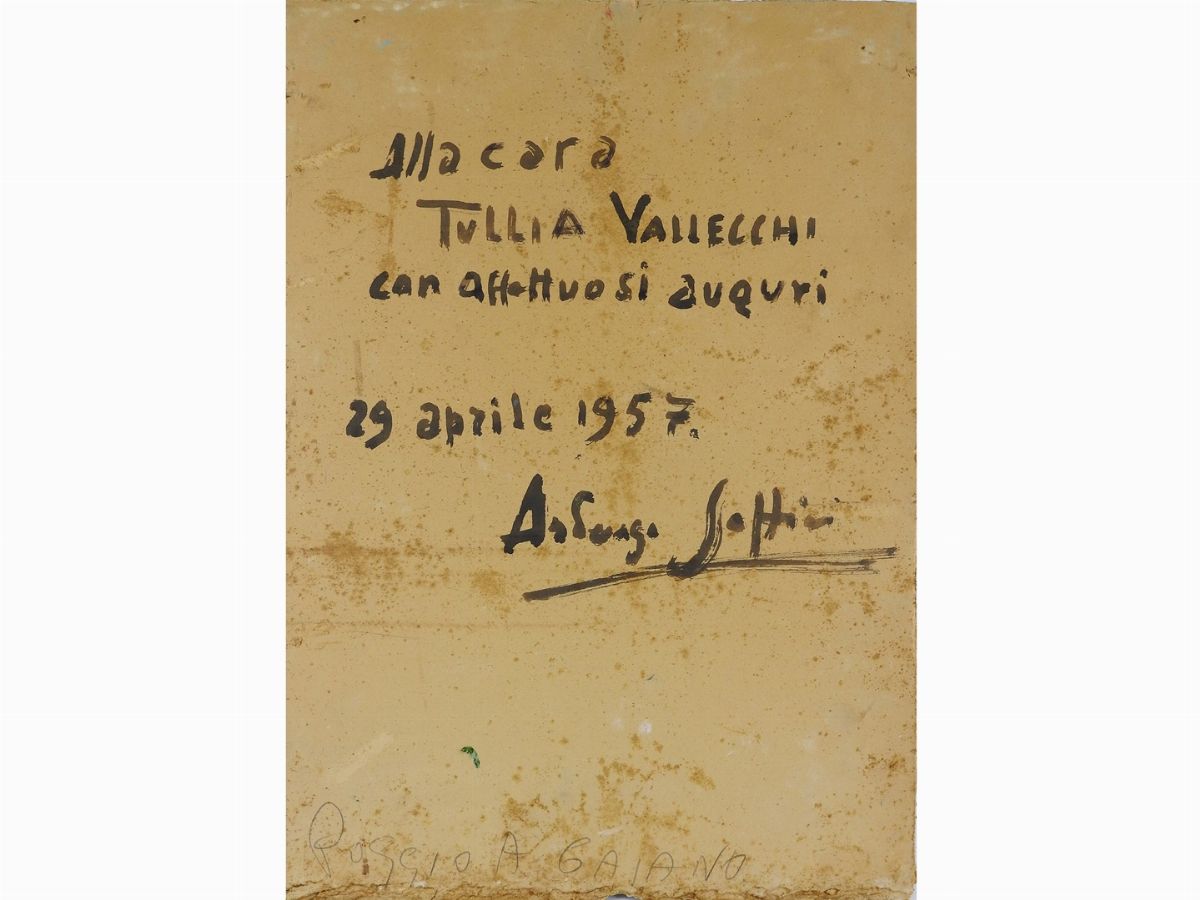 Alla cara
TULLIA VALLECCHI
con affettuosi auguri
29 aprile 1957.
Ardengo Soffici
POGGIO A CAIANO